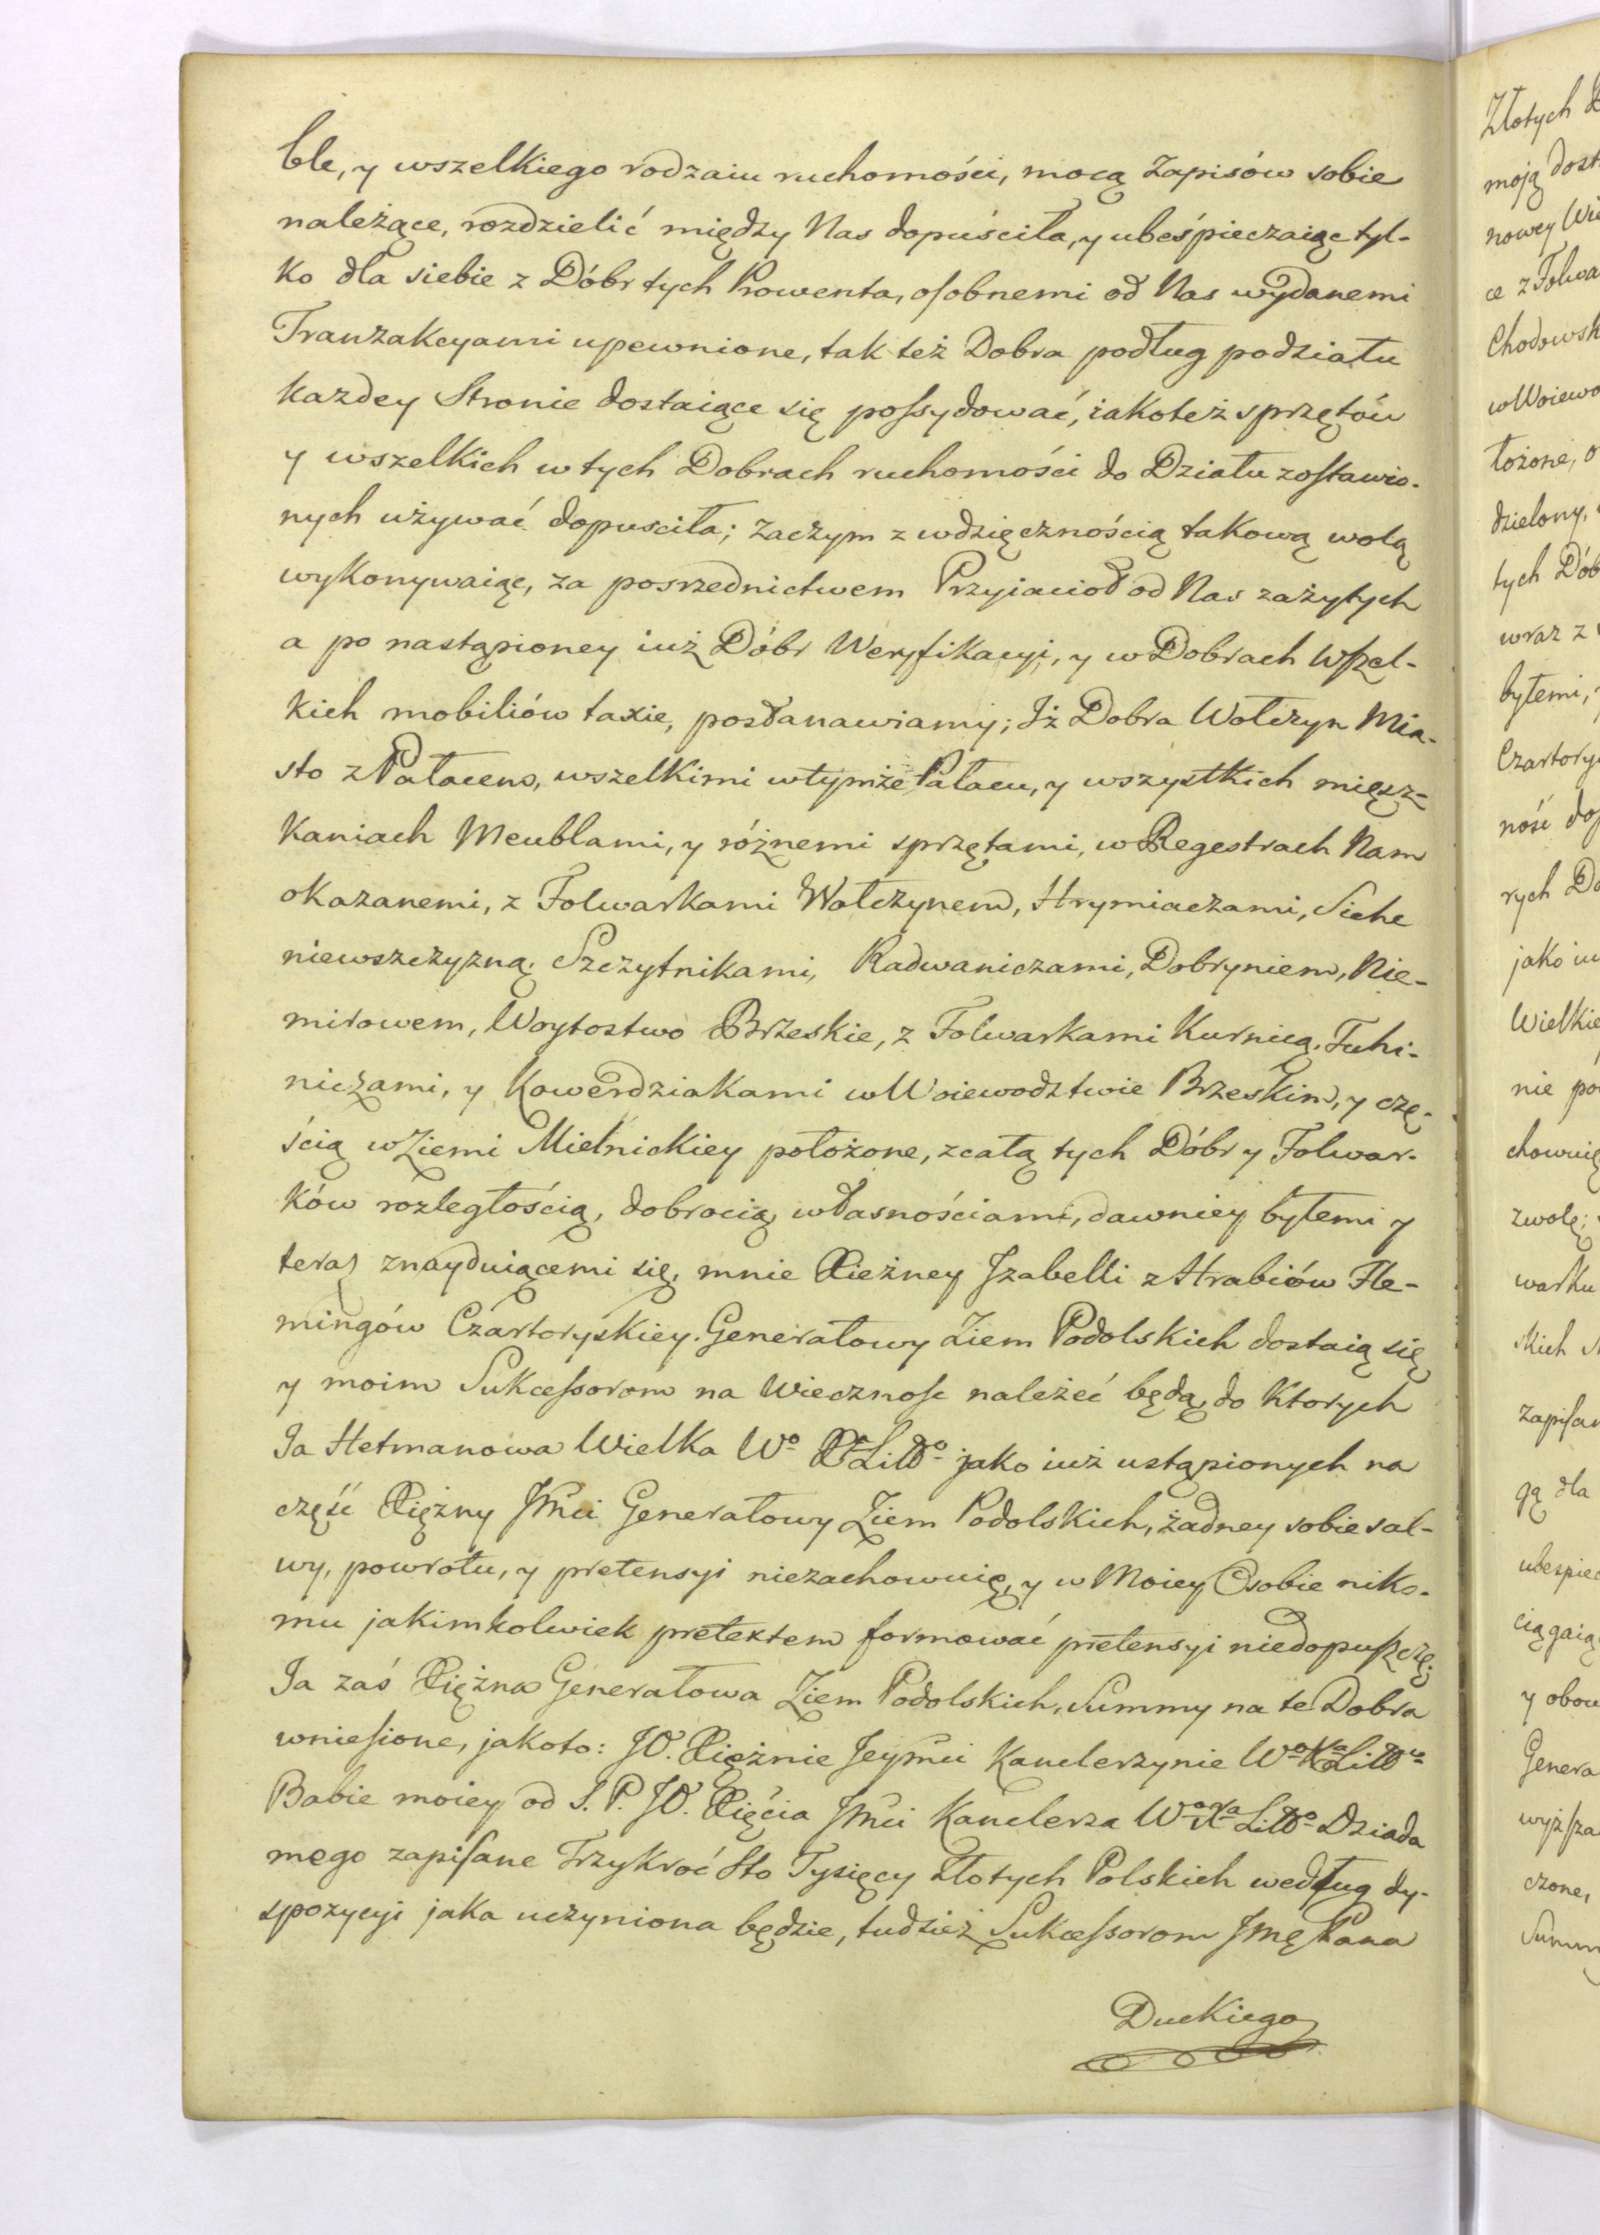 ble, y wszelkiego rodzaiu ruchomości, mocą Zapisów sobie
należące, rozdzielić między Nas dopuściła, y ubeśpieczaiąc tyl-
ko dla siebie z Dóbr tych Prowenta, osobnemi od Nas wydanemi
Tranzakcyami upewnione, tak też Dobra podług podziału
każdey Stronie dostaiące się possydować, iakoteż sprzętów
y wszelkich w tych Dobrach ruchomości do Działu zostawio-
nych używać dopusciła; Zaczym z wdzięcznością takową wolą
wykonywaiąc, za posrzednictwem Przyiacioł od Nas zażytych
a po nastąpioney iuż Dóbr Weryfikacyi, y w Dobrach wszel-
kich mobiliów taxie, postanawiamy; Jż Dobra Wołczyn Mia-
sto z Pałacem, wszelkimi w tymże Pałacu, y wszystkich miesz-
kaniach Meublami, y różnemi sprzętami, w Regestrach Nam
okazanemi, z Folwarkami Wołczynem, Hrymiaczami, Siehe
niewszczyzną, Szczytnikami, Radwaniczami, Dobryniem, Nie-
mirowem, Woytostwo Brzeskie, z Folwarkami Kurnicą, Tuhi-
niczami, y Kowerdziakami w Woiewodztwie Brzeskim, y czę-
ścią w Ziemi Mielnickiey położone, z całą tych Dóbr y Folwar-
ków rozległością, dobrocią, własnościami, dawniey byłemi y
teraz znayduiącemi się, mnie Xiężney Jzabelli z Hrabiów Fle-
mingów Czartoryskiey Generałowy Ziem Podolskich dostaią się
y moim Sukcessorom na Wiecznosc należeć będą, do ktorych
Ja Hetmanowa Wielka Wo Xa Litto jako iuż ustąpionych na
część Xiężny Jmci Generałowy Ziem Podolskich, żadney sobie sal-
wy, powrotu, y pretensyi niezachowuię, y w Moiey Osobie niko-
mu jakimkolwiek pretextem formować pretensyi niedopuszczę;
Ja zaś Xiężna Generałowa Ziem Podolskich, Summy na te Dobra
wniesione, jakoto: JO. Xiężnie Jeymci Kanclerzynie Wo Xa Litto
Babie moiey od S. P. JO. Xięcia Jmci Kanclerza Wo Xa Litto Dziada
mego zapisane Trzykroć Sto Tysięcy Złotych Polskich według dy-
spozycyi jaka uczyniona będzie, tudzież Sukcessorom Jmę Pana
Duckiego
Złotych
moją dost
nowey
ce z Folwa
Chodowsk
w Woiewo
łożone, o
dzielony,
tych Dób
wraz z
byłemi,
Czartory
ność dop
rych Do
jako iu
Wielkie
nie po
chowuię
zwolę;
warku
skich
Zapisan
gą dla
ubespiec
ciągaią
y obow
Genera
wyższa
czone,
Summ